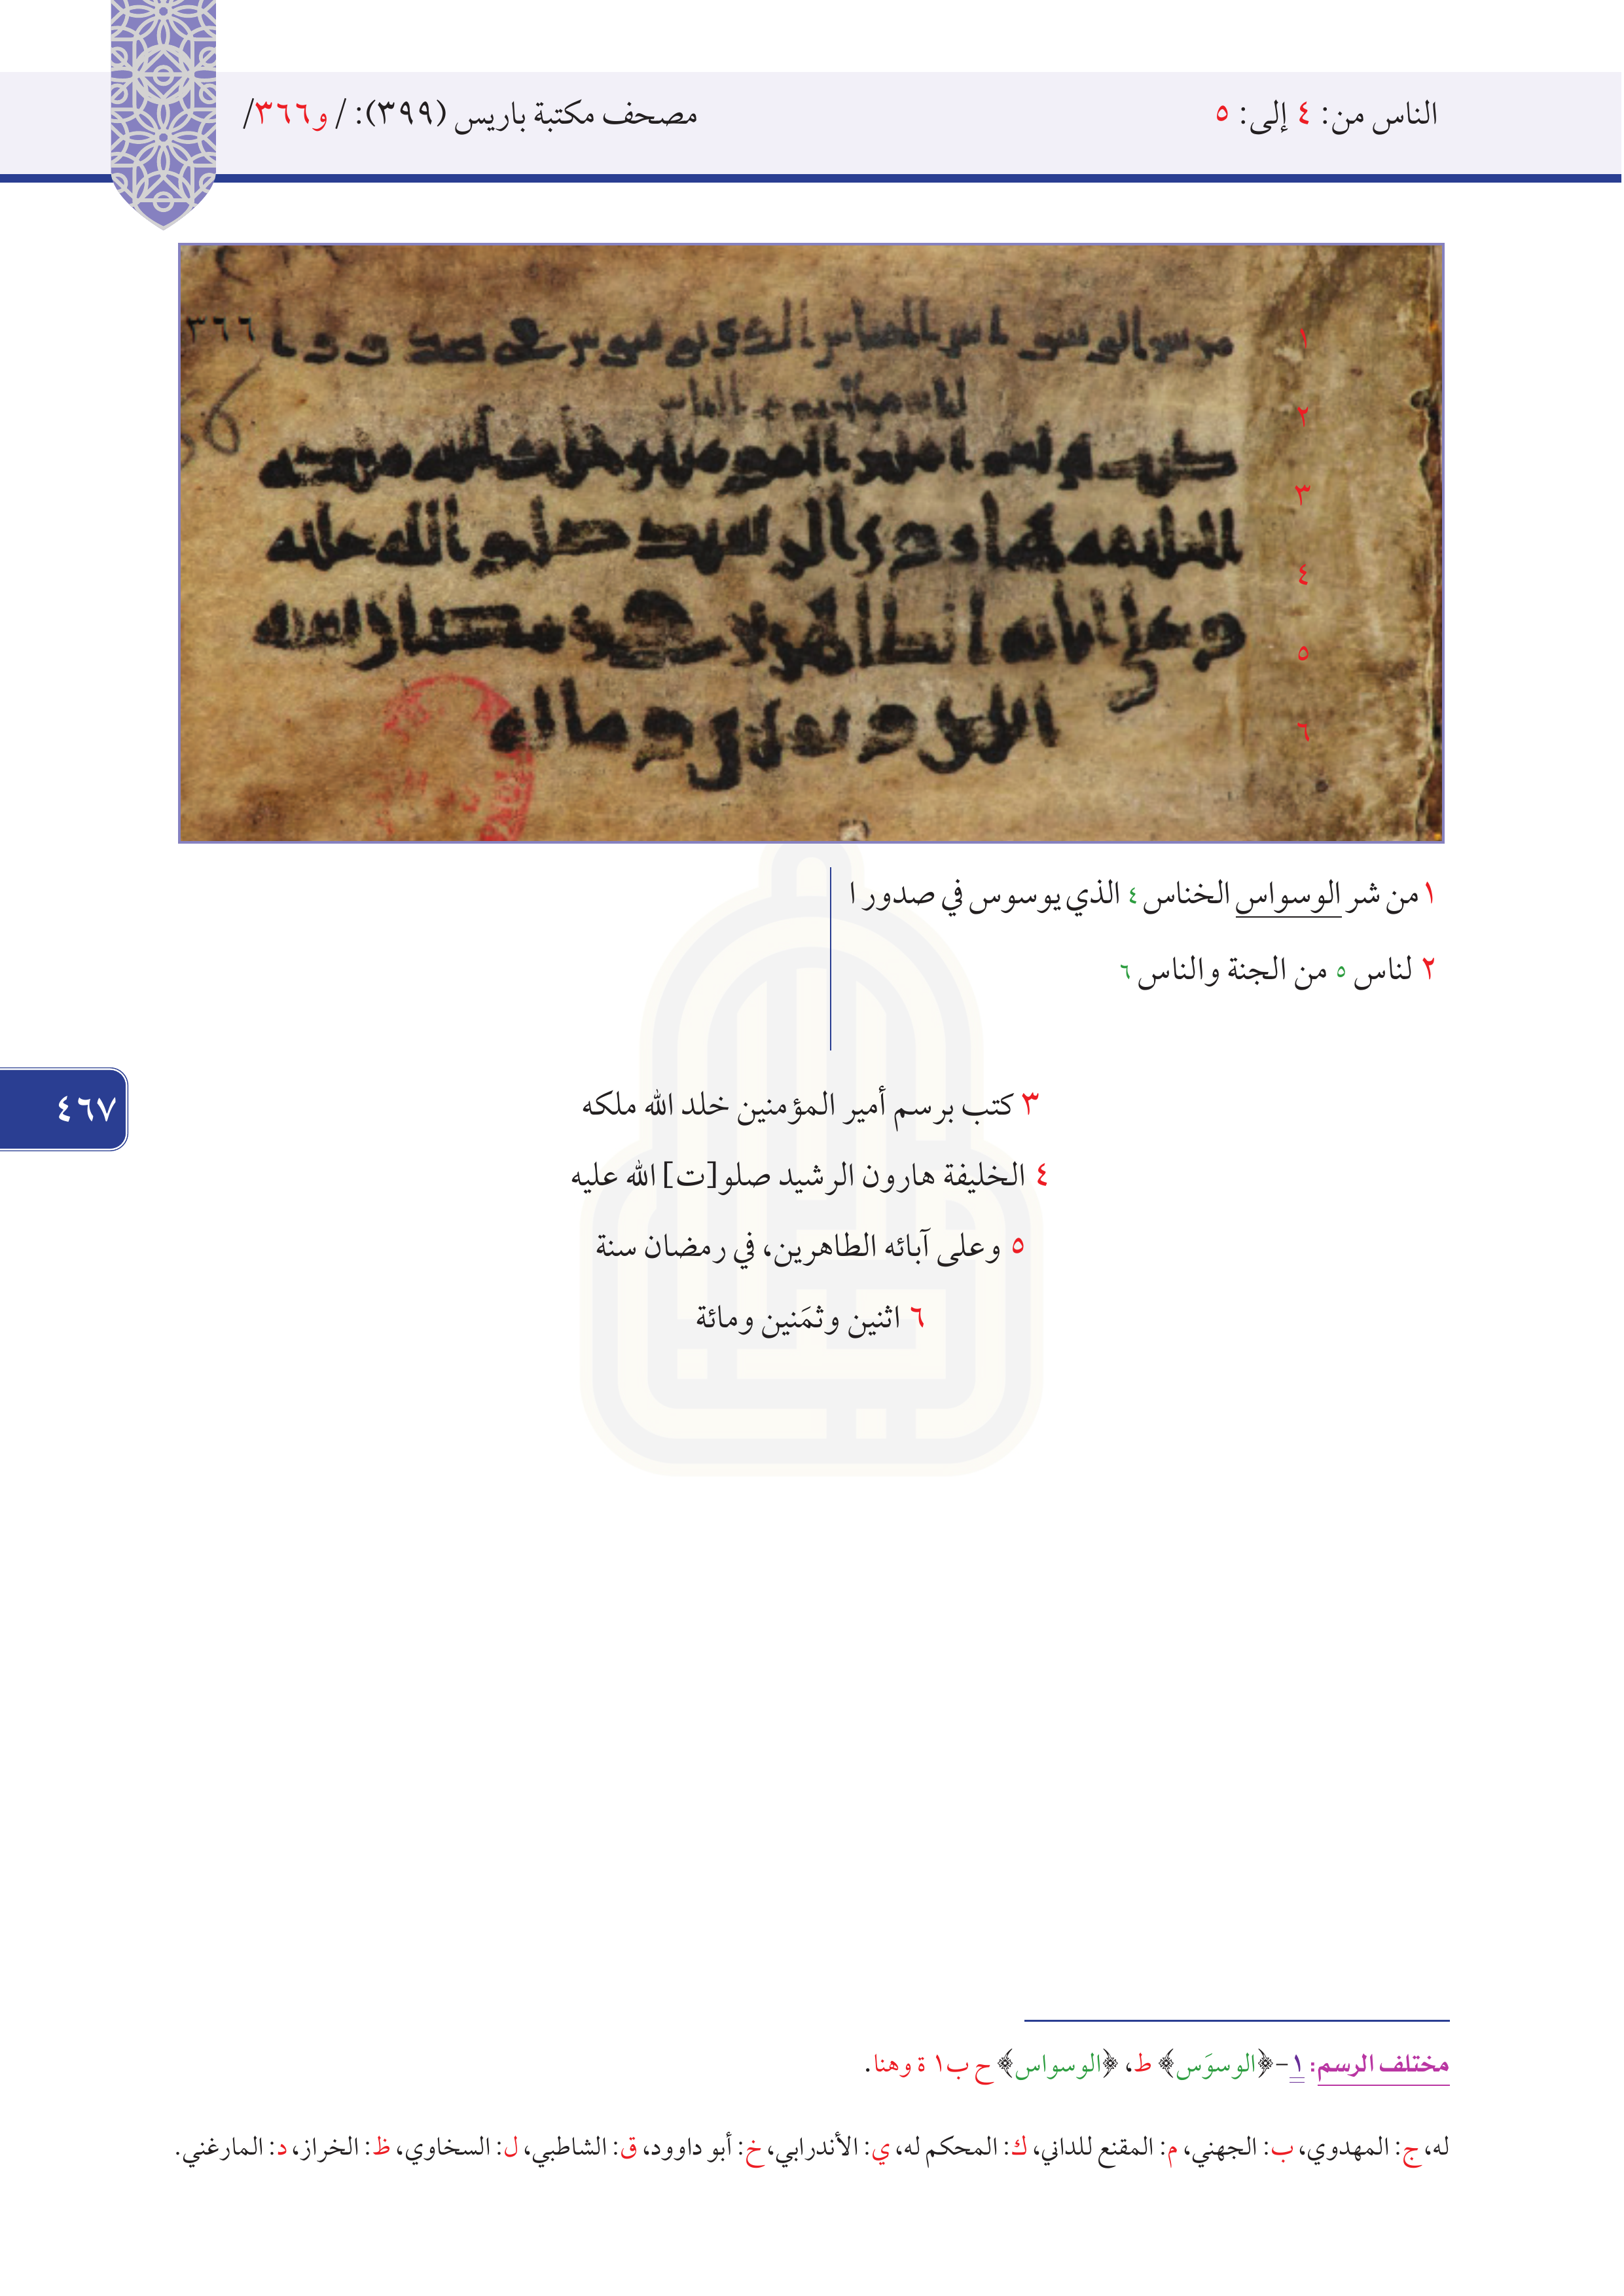 الناس من: ٤ إلى: ٥
مصحف مكتبة باريس (٣٩٩): / و٣٦٦/
٣٦٦
١
٢
٣
٤
٥
٦
١ من شر الوسواس الخناس ٤ الذي يوسوس في صدور ا
٢ لناس ٥ من الجنة والناس ٦
٣ كتب برسم أمير المؤمنين خلد الله ملكه
٤ الخليفة هارون الرشيد صلو[ت] الله عليه
٥ وعلى آبائه الطاهرين، في رمضان سنة
٦ اثنين وثمَنين ومائة
٤٦٧
مختلف الرسم: ١-﴿الوسوَس﴾ ط، ﴿الوسواس﴾ ح ب١ ة وهنا.
له، ج: المهدوي، ب: الجهني، م: المقنع للداني، ك: المحكم له، ي: الأندرابي، خ: أبو داوود، ق: الشاطبي، ل: السخاوي، ظ: الخراز، د: المارغني.